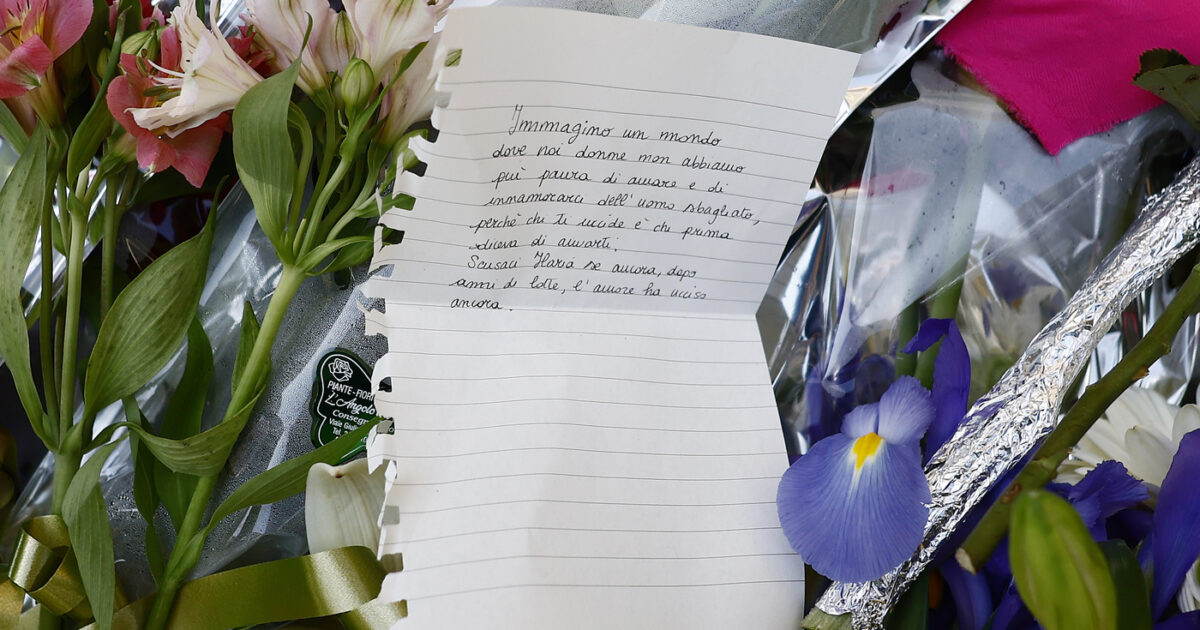 Immagino un mondo
dove noi donne non abbiamo
più paura di amare e di
innamorarci dell'uomo sbagliato,
perchè chi ti uccide è chi prima
diceva di amarti.
Scusaci Ilaria se ancora, dopo
anni di lotte, l'amore ha ucciso
ancora.
PIANTE-FIORI
L'Angolo
Consegn
Viale
Tel.